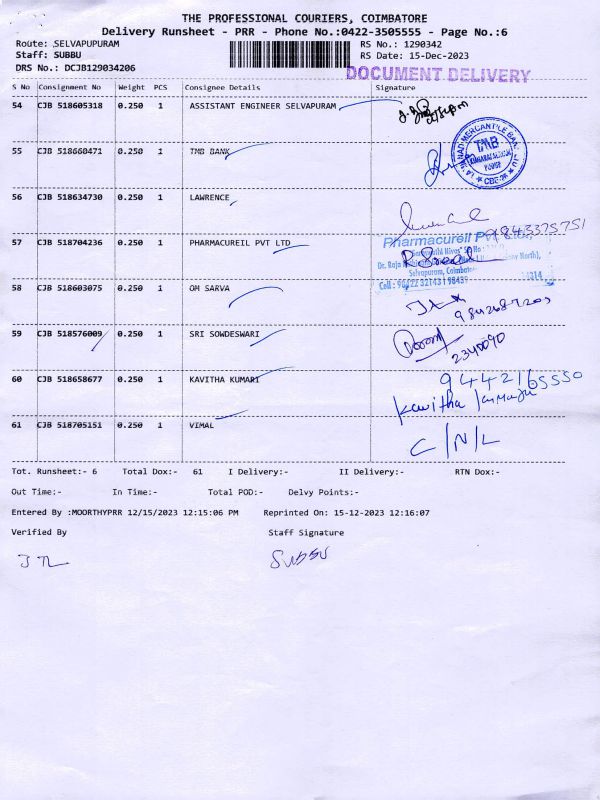 THE PROFESSIONAL COURIERS, COIMBATORE
Delivery Runsheet - PRR - Phone No.:0422-3505555 - Page No.:6
Route: SELVAPUPURAM RS No.: 1290342
Staff: SUBBU RS Date: 15-Dec-2023
DRS No.: DCJB129034206 DOCUMENT DELIVERY
S No Consignment No Weight PCS Consignee Details Signature
54 CJB 518605318 0.250 1 ASSISTANT ENGINEER SELVAPURAM
55 CJB 518660471 0.250 1 TMB BANK
TMB
56 CJB 518634730 0.250 1 LAWRENCE
9843375751
57 CJB 518704236 0.250 1 PHARMACUREIL PVT LTD
Pharmacureil
Selvapuram, Coimbatore
58 CJB 518603075 0.250 1 OM SARVA
59 CJB 518576009 0.250 1 SRI SOWDESWARI
2340090
60 CJB 518658677 0.250 1 KAVITHA KUMARI
9442165550
Kavitha
61 CJB 518705151 0.250 1 VIMAL
C/N/L
Tot. Runsheet:- 6 Total Dox:- 61 I Delivery:- II Delivery:- RTN Dox:-
Out Time:- In Time:- Total POD:- Delvy Points:-
Entered By :MOORTHYPRR 12/15/2023 12:15:06 PM Reprinted On: 15-12-2023 12:16:07
Verified By Staff Signature
SUBBU